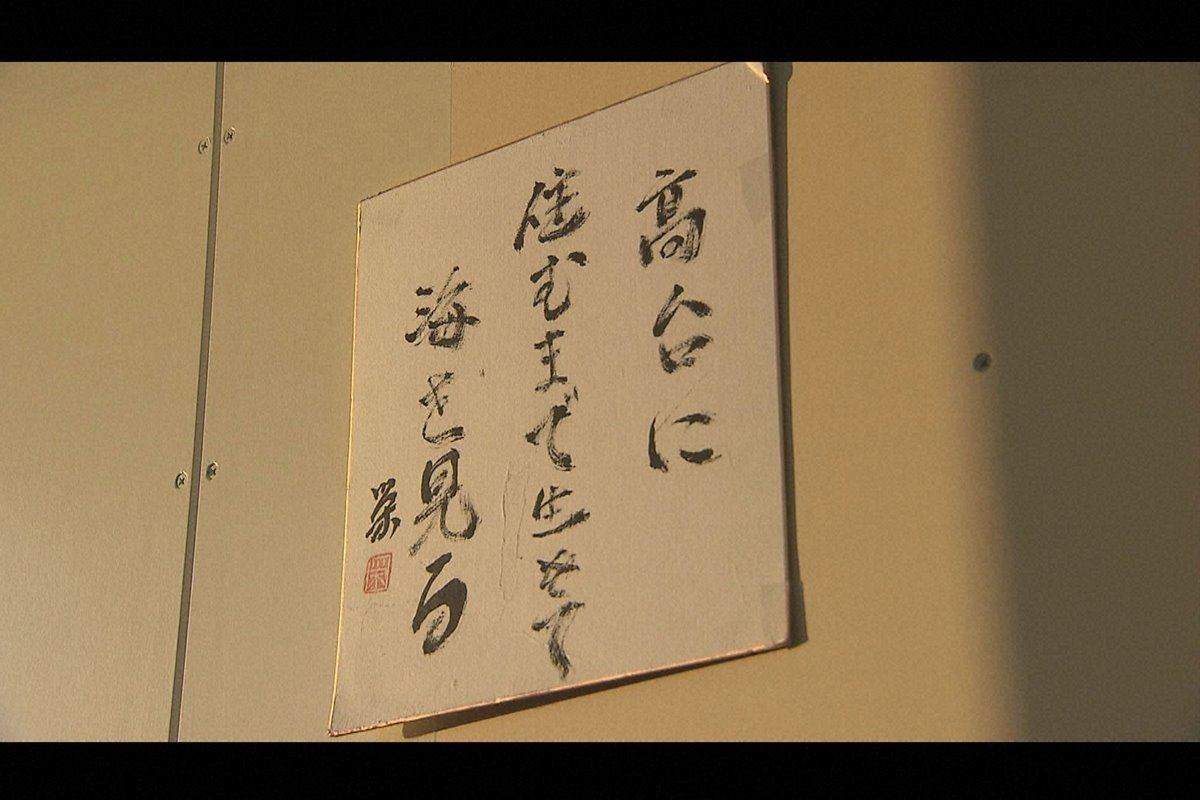 高台に
住むまで生きて
海を見る
栄